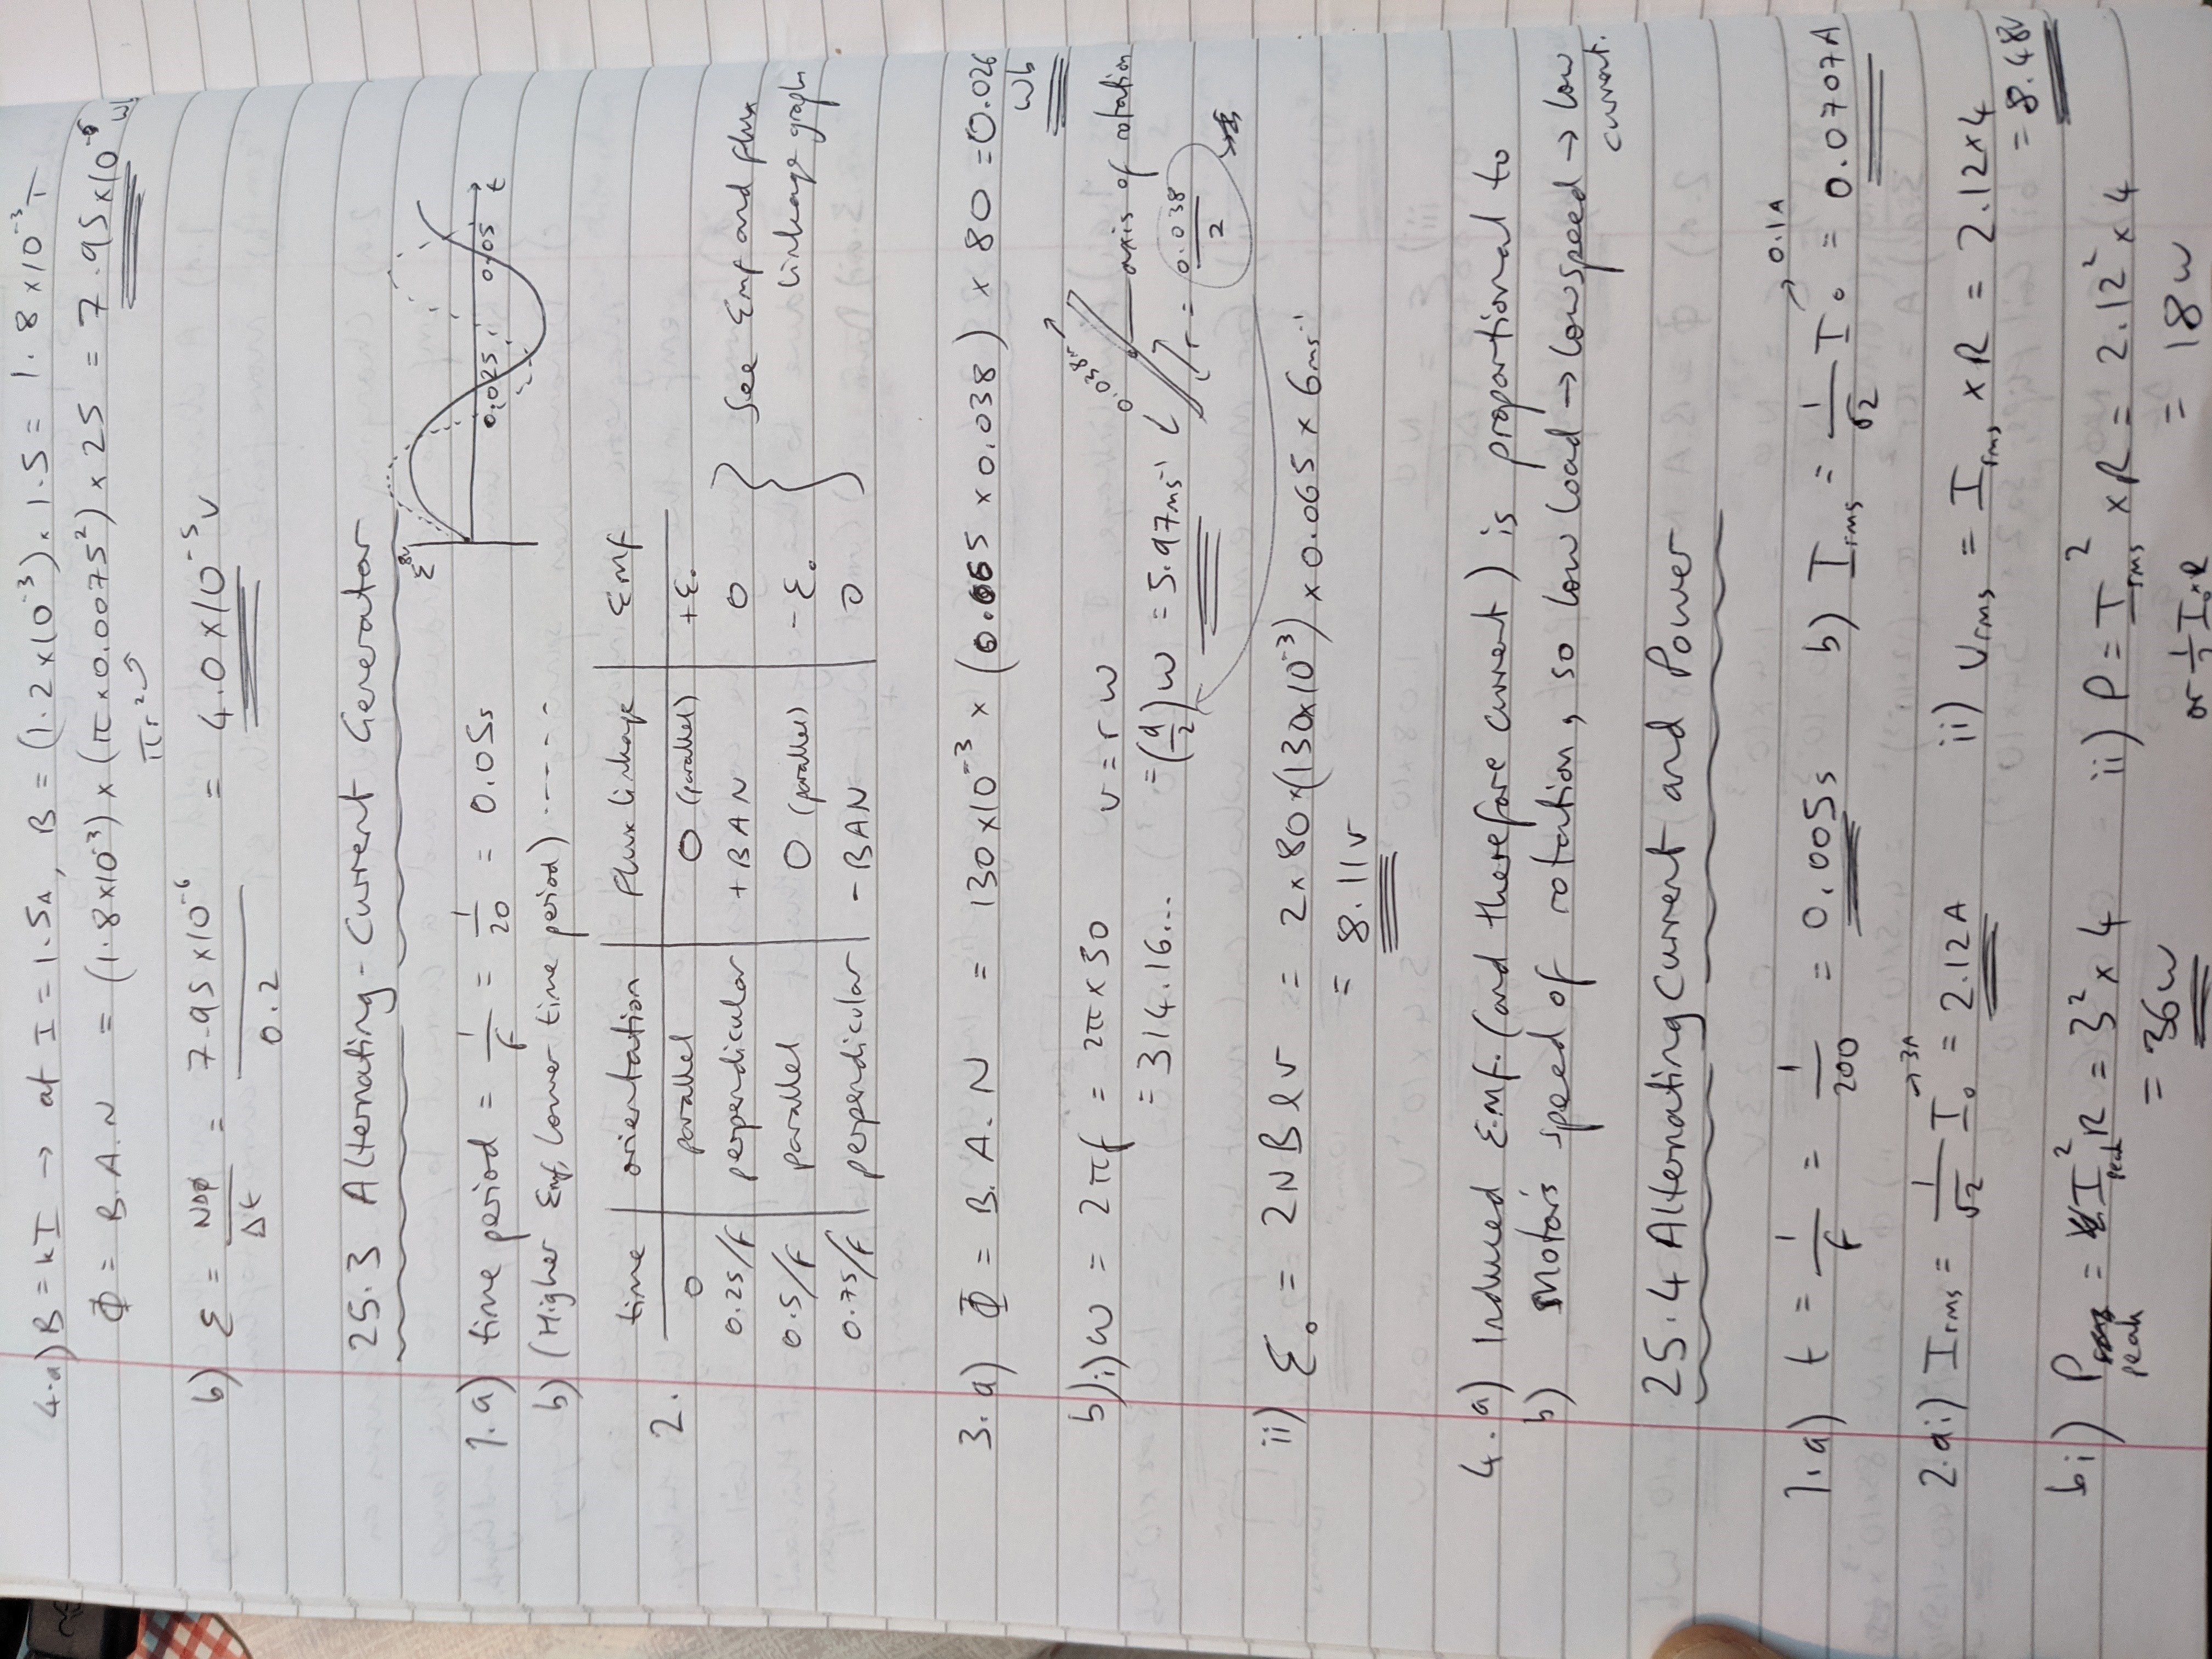 4.a) B = kI → at I = 1.5A, B = (1.2×10⁻³) × 1.5 = 1.8×10⁻³ T
Φ = B.A.N = (1.8×10⁻³) × (π × 0.0075²) × 25 = 7.95×10⁻⁶ Wb
πr²
b) ε = NΔφ/Δt = 7.95×10⁻⁶/0.2 = 4.0×10⁻⁵ V
25.3 Alternating-Current Generator
ε 8v
0.025 0.05 t
1.a) time period = 1/f = 1/20 = 0.05s
b) (Higher Emf, lower time period) -----
2. time | orientation | flux linkage | Emf
0 | parallel | 0 (parallel) | +ε₀
0.25/f | perpendicular | +BAN | 0
0.5/f | parallel | 0 (parallel) | -ε₀
0.75/f | perpendicular | -BAN | 0
See Emf and flux
linkage graph
3.a) Φ = B.A.N = 130×10⁻³ × (0.065 × 0.038) × 80 = 0.026
Wb
b)i) w = 2πf = 2π×30 v = rw
= 314.16... = (d/2)w = 5.97ms⁻¹
0.038 axis of rotation
r = 0.038/2
ii) ε₀ = 2NBlv = 2×80×(130×10⁻³) × 0.065 × 6ms⁻¹
= 8.11v
4.a) Induced E.m.f. (and therefore current) is proportional to
b) motors speed of rotation, so low load → low speed → low
current.
25.4 Alternating Current and Power
1.a) t = 1/f = 1/200 = 0.005s b) I rms = 1/√2 I₀ = 0.0707A
→ 0.1A
2.ai) I rms = 1/√2 I₀ = 2.12A ii) Vrms = I rms × R = 2.12×4
→3A
= 8.48v
bi) P peak = I² peak R = 3² × 4 ii) P = I² rms × R = 2.12² × 4
= 36w = 18w
or 1/2 I₀×R